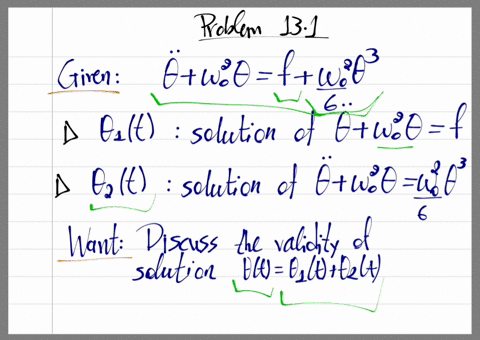 Problem 13.1
Given: θ̈ + ω₀²θ = f + ω₀²/6 θ³
▷ θ₁(t) : solution of θ̈ + ω₀²θ = f
▷ θ₂(t) : solution of θ̈ + ω₀²θ = ω₀²/6 θ³
Want: Discuss the validity of
solution θ(t) = θ₁(t) + θ₂(t)